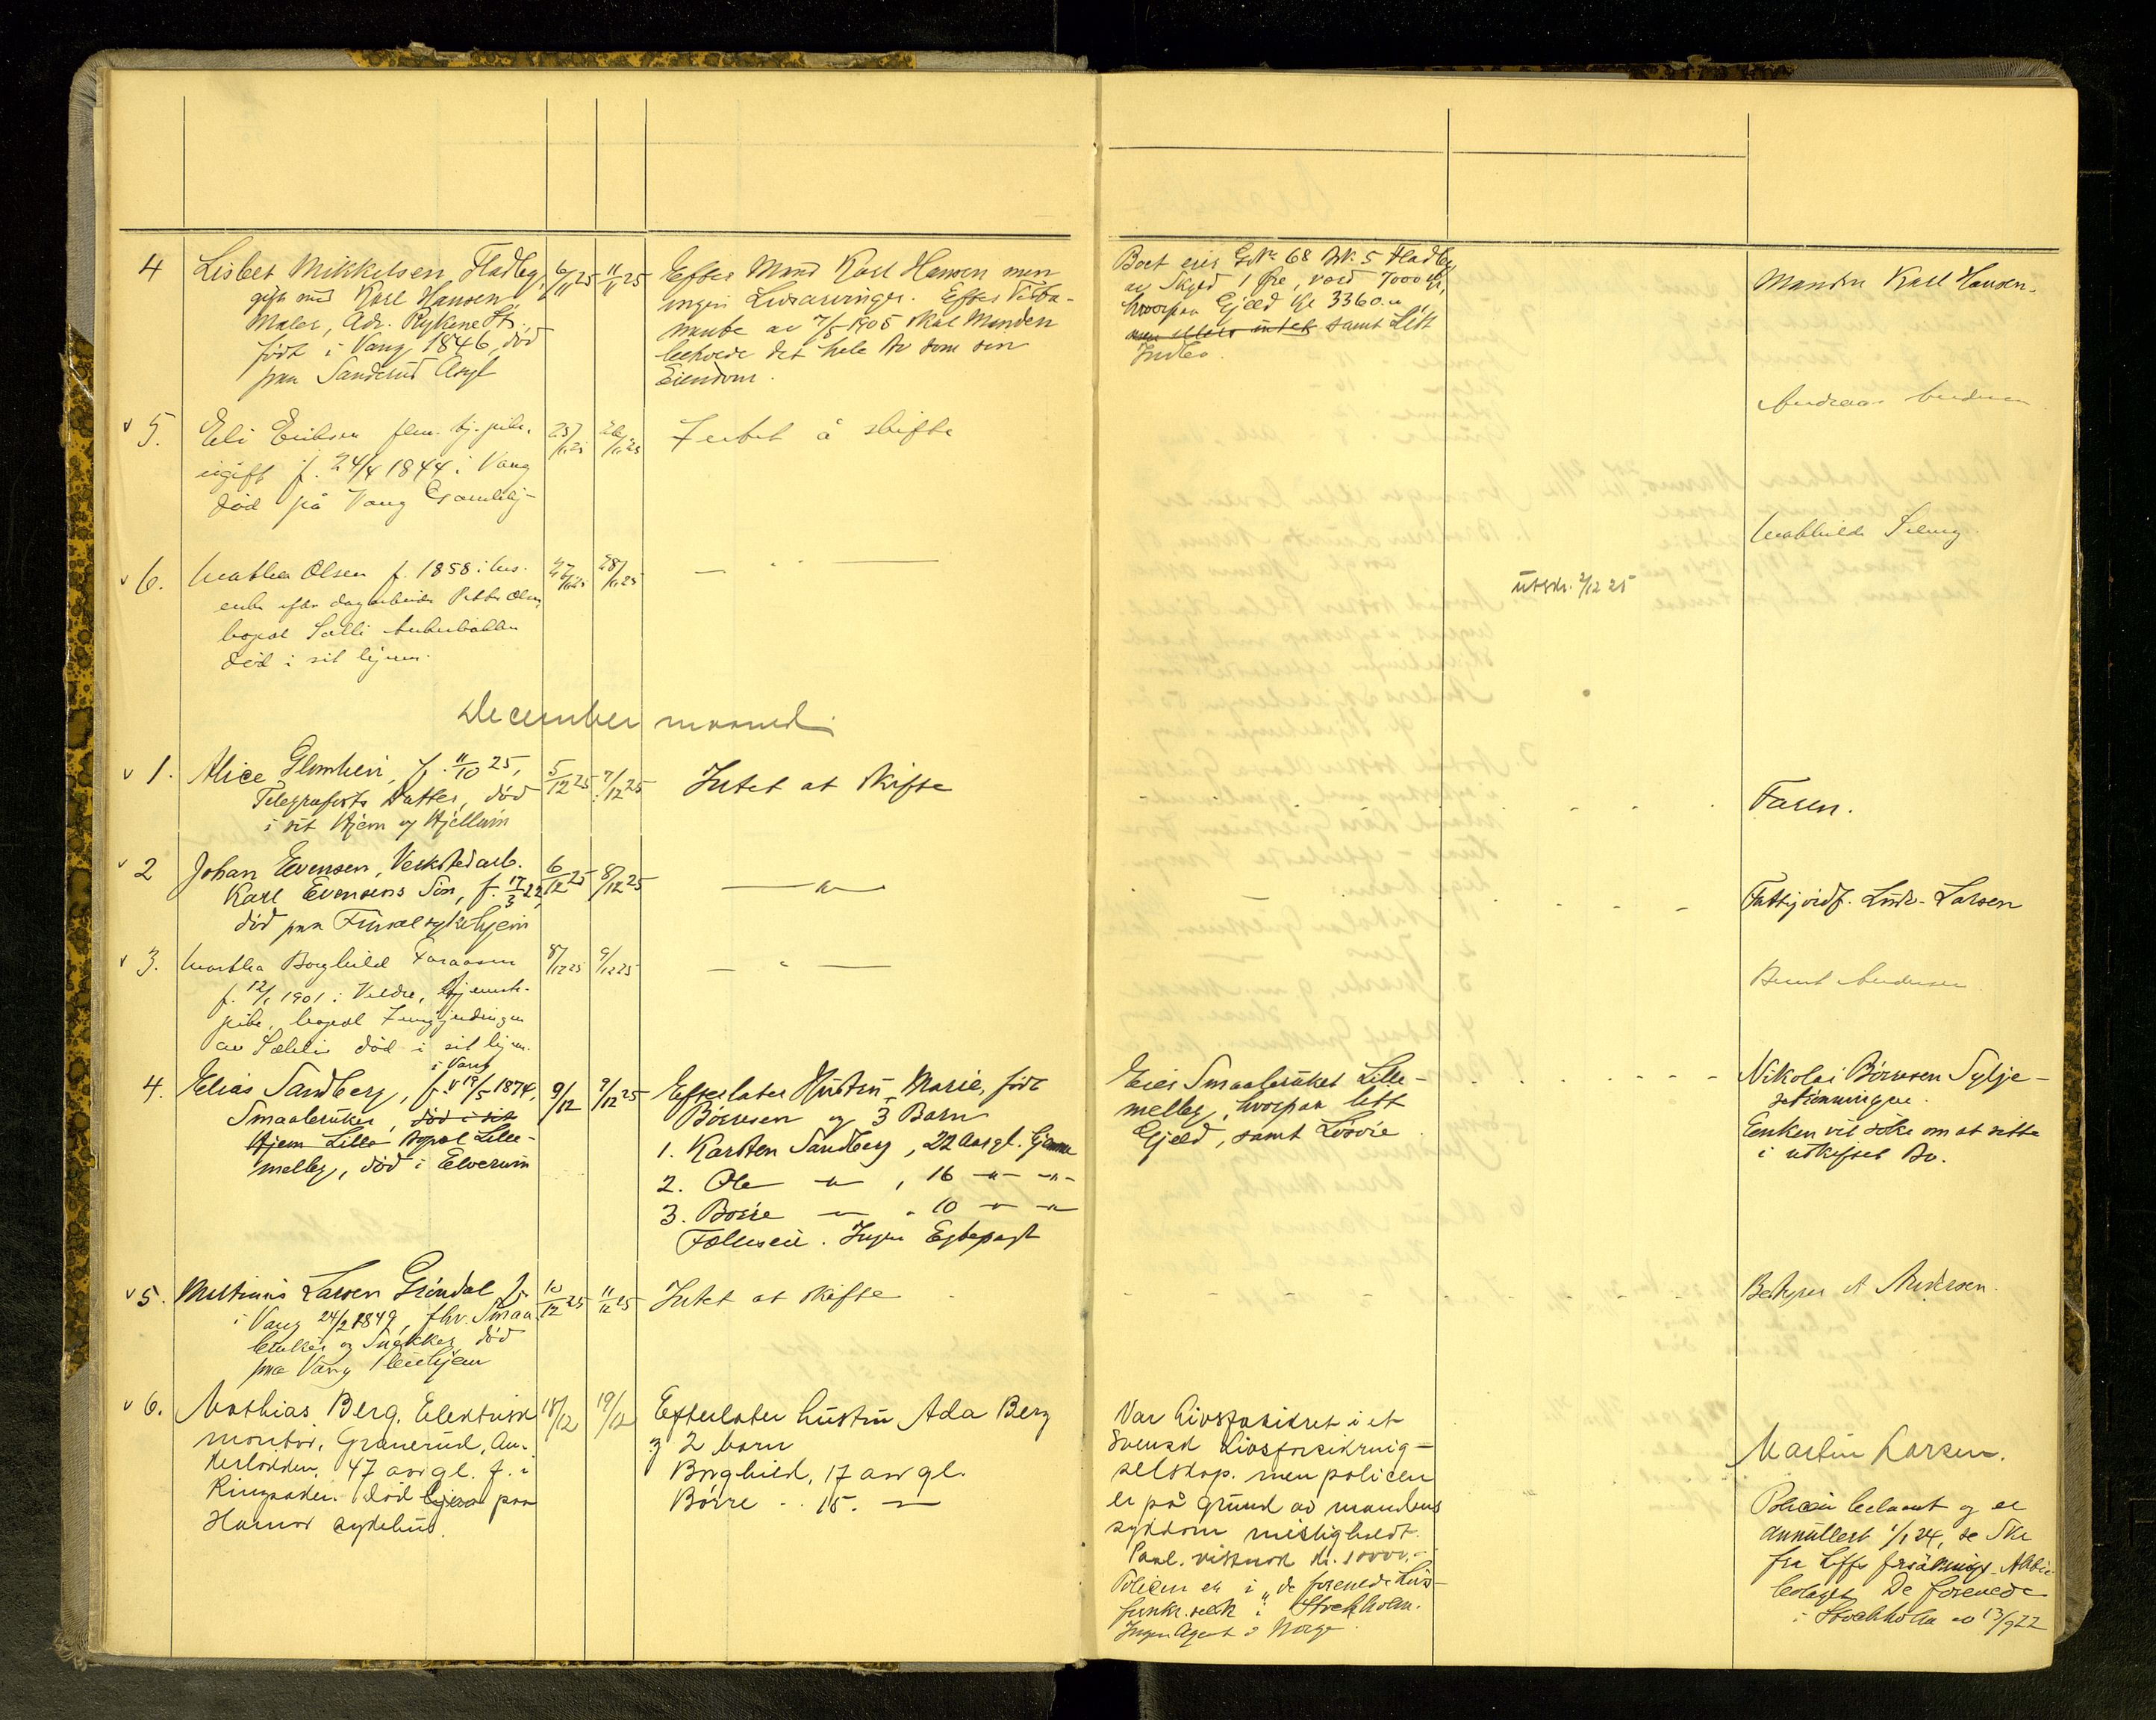 4 Lisbet Mikkelsen, Fladby, 6/11 25 11/11 25
gift med Karl Hansen,
Maler, Adr. Rykene St,
født i Vang 1846, død
paa Sanderud Asyl
Efter Mand Karl Hansen men
ingen Livsarvinger. Efter Testa-
mente av 7/5 1905 skal Manden
beholde det hele Bo som sin
Eiendom.
Boet eier GNr. 68 BNr. 5 Fladby
av Skyld 1 Øre, værd 7000 kr,
hvorpaa Gjæld kr 3360.
men ellers intet samt Litt
Indbo.
Manden Karl Hansen.
v 5. Eli Eriksen
ugift f. 24/4 1844 i Vang
død på Vang Gamlehj-
Intet å skifte
Andreas Andersen
v 6. Mathea Olsen f. 1858 i
enke efter dagarbeider Petter Olsen,
bopæl Sælli
død i sit hjem.
28/11 25
— " —
utskr. 2/12 25
Mathilde
December maaned
v 1. Alice Glemhei, f. 11/10 25,
Telegrafists Datter, død
i sit Hjem og Hjellum
5/12 25 7/12 25
Intet at skifte
Faren.
v 2 Johan Evensen, Verkstedarb.
Karl Evensens Søn, f. 17/3 22,
død paa Furnes sykehjem
6/12 25 8/12 25
— " —
Fattigvidf. Larsen
v 3. Martha Borghild
f. 12/1 1901 i Veldre, hjemmev.
pike, bopæl
av Sælli død i sit hjem.
8/12 25 9/12 25
— " —
Bernt Andersen
4. Elias Sandberg, f. i Vang 19/5 1874,
Smaabruker, død i sit
Hjem Lille bopæl Lille-
melby, død i Elverum
9/12 9/12 25
Efterlater Hustru Marie, født
Børresen og 3 Barn
1. Karsten Sandberg, 22 Aar gl. hjemme
2. Ole — " —, 16 — " — — " —
3. Børre — " — 10 — " — — " —
Fælleseie. Ingen Egtepagt
Eier Smaabruket Lille-
melby, hvorpaa litt
Gjæld, samt Løsøre
Nikolai Børresen Sylje-
sætrønningen.
Enken vil søke om at sitte
i uskiftet Bo.
v 5. Martinus Larsen Grøndal f.
i Vang 24/2 1849, fhv. Smaa-
bruker og Snekker, død
paa Vang Pleiehjem
10/12 25 11/12 25
Intet at skifte
Bestyrer A Andersen.
v 6. Mathias Berg. Elektrisk
montør, Granerud, An-
kerløkken, 47 aar gl. f. i
Ringsaker. død hjem paa
Hamar sykehus.
18/12 19/12
Efterlater hustru Ada Berg
og 2 barn
Borghild, 17 aar gl.
Børre - " - 15. —
Var livsforsikret i et
Svensk Livsforsikrnig-
selskap. men policen
er på grund av mandens
sykdom misligholdt.
Paal. vistnok kr. 10000.-
Policen er i "de forenede Livs-
forsikr. selsk" i Stockholm.
Ingen Agent i Norge.
Martin Larsen.
Policen og er
annullert 1/1 24, se Skr
fra Liffs försäkrings Aktie-
bolaget De forenede
i Stockholm av 13/9 22